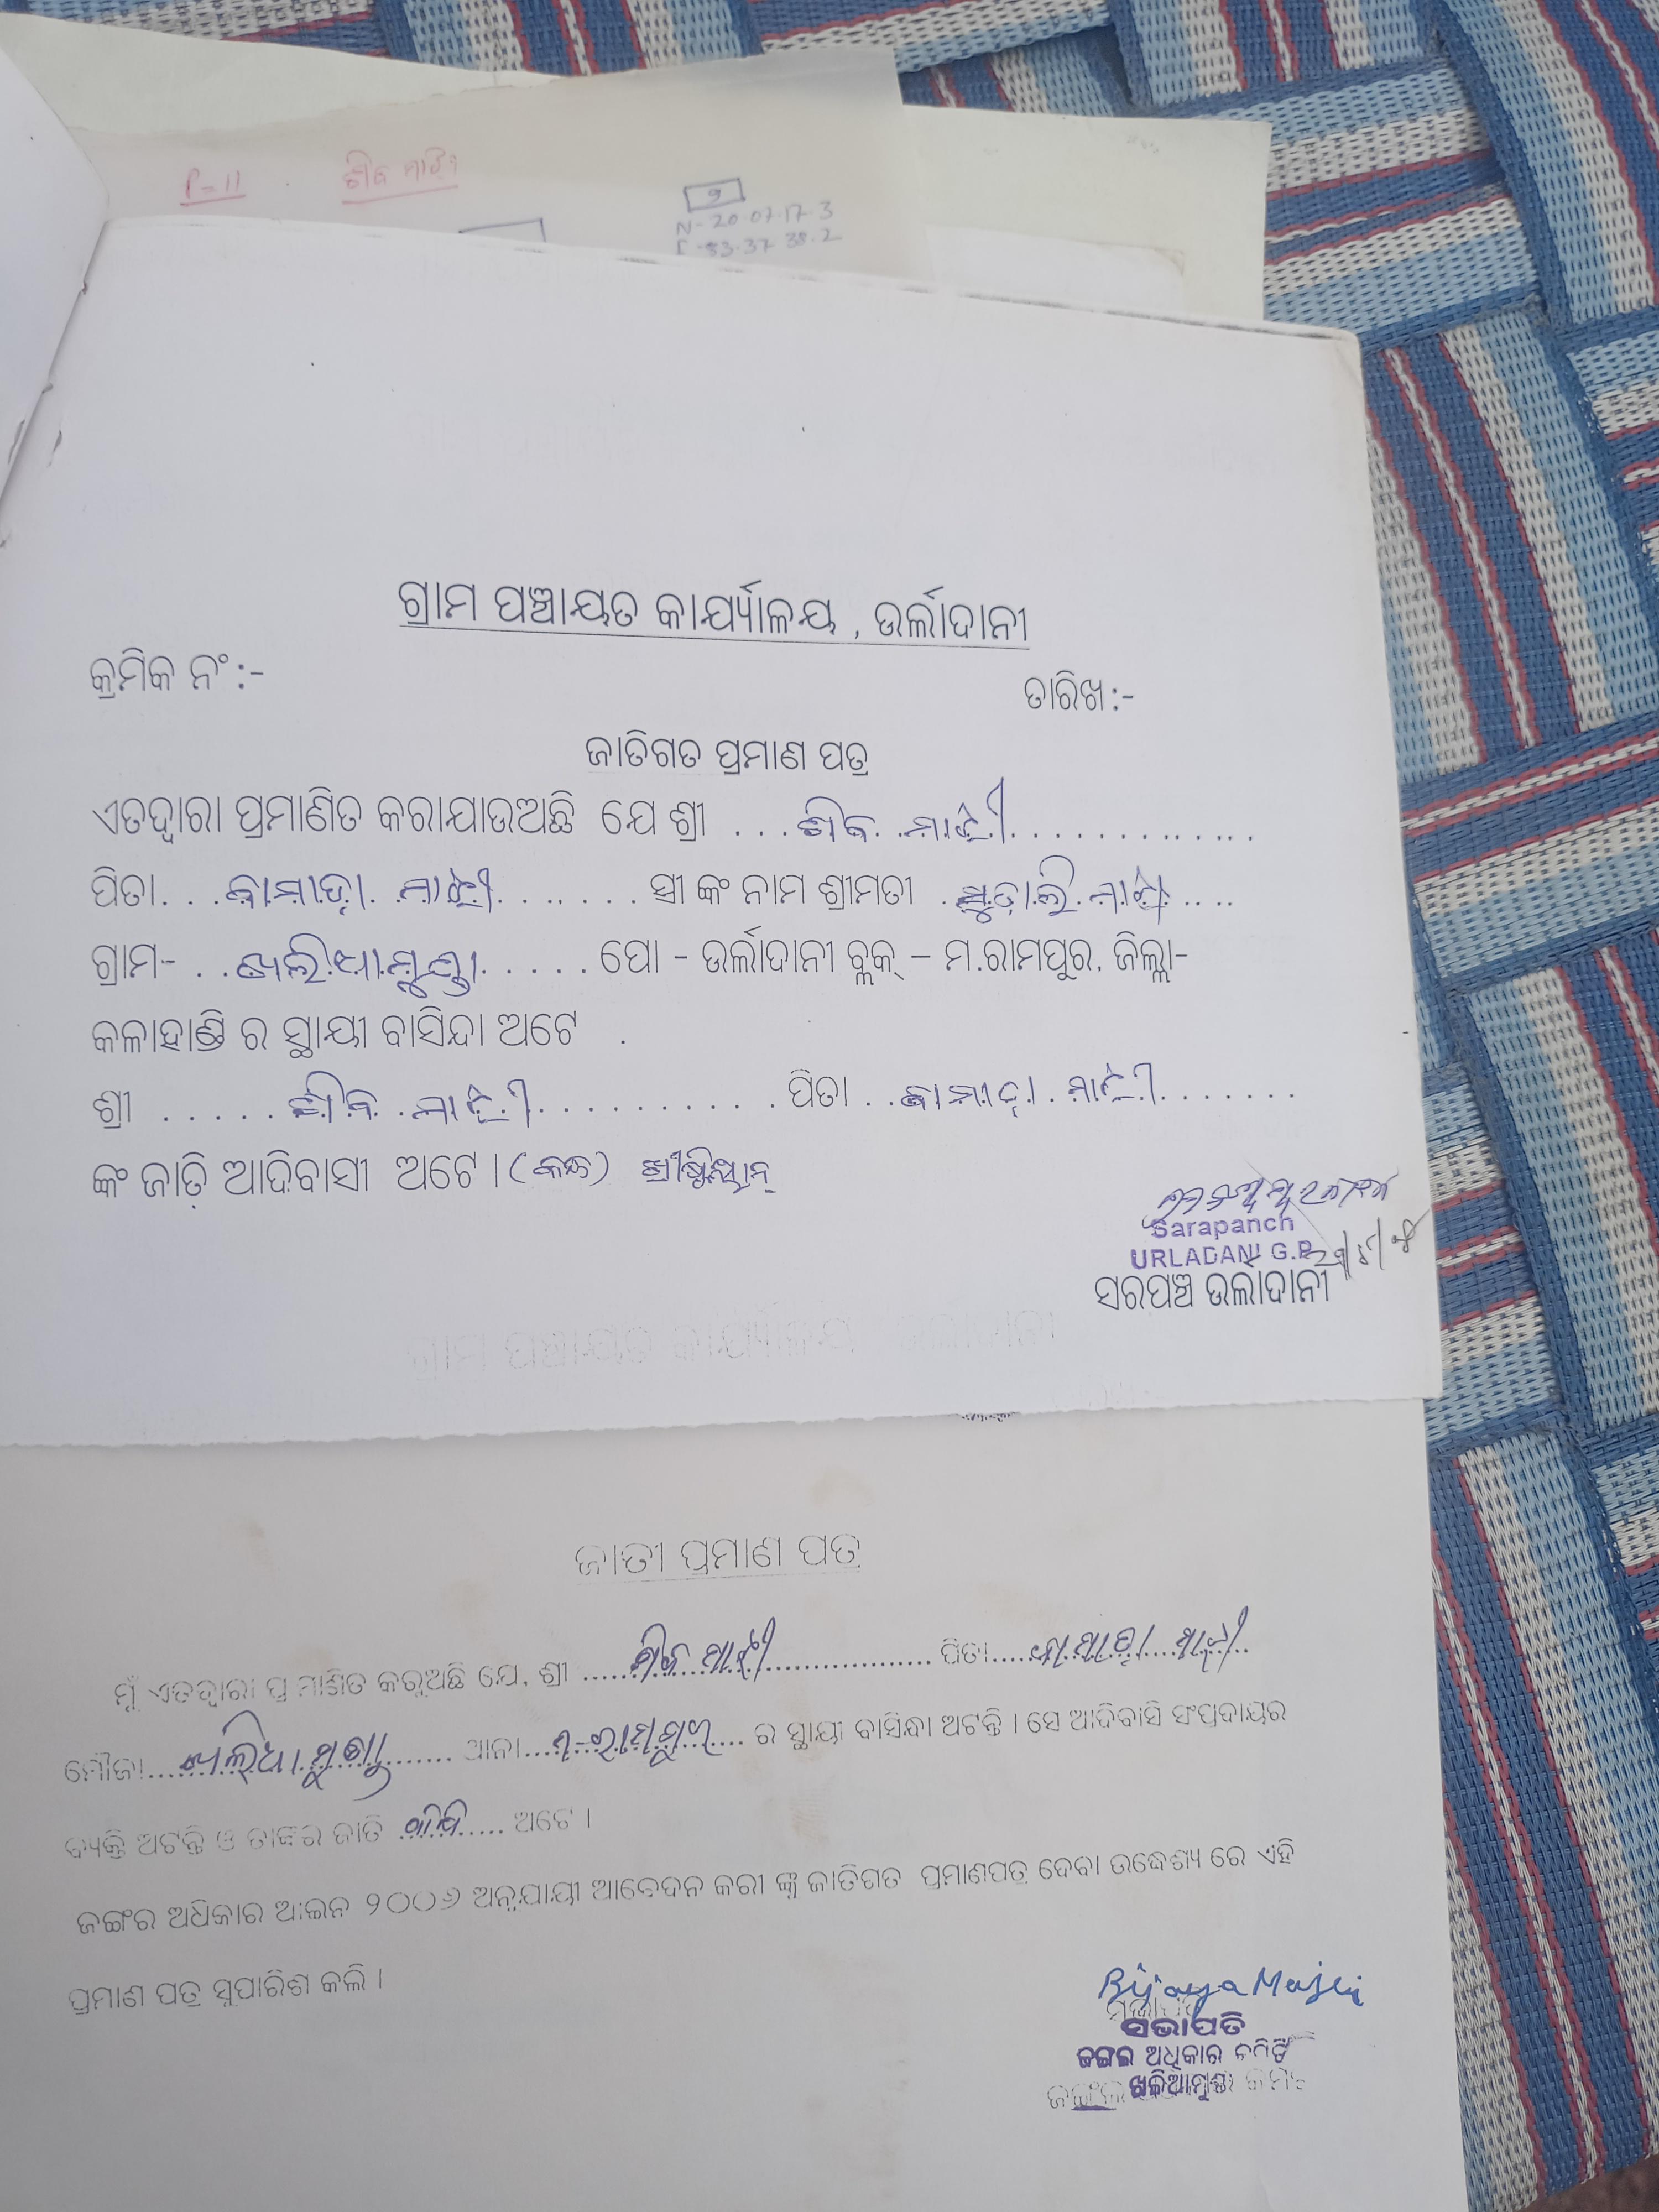 P=11 ଶିବ ମାଝି
9
N- 20.07.17.3
E-83.37 38.2
ଗ୍ରାମ ପଞ୍ଚାୟତ କାର୍ଯ୍ୟାଳୟ , ଉର୍ଲାଦାନୀ
କ୍ରମିକ ନଂ :-
ତାରିଖ:-
ଜାତିଗତ ପ୍ରମାଣ ପତ୍ର
ଏତଦ୍ଵାରା ପ୍ରମାଣିତ କରାଯାଉଅଛି ଯେ ଶ୍ରୀ ... ଶିବ ମାଝୀ ............
ପିତା... ମାଝୀ ....... ସ୍ତ୍ରୀ ଙ୍କ ନାମ ଶ୍ରୀମତୀ . ମାଝି ....
ଗ୍ରାମ- .. ଖଲିଆମୁଣ୍ଡା ..... ପୋ - ଉର୍ଲାଦାନୀ ବ୍ଲକ୍ – ମ.ରାମପୁର, ଜିଲ୍ଲା-
କଳାହାଣ୍ଡି ର ସ୍ଥାୟୀ ବାସିନ୍ଦା ଅଟେ .
ଶ୍ରୀ ..... ଶିବ ମାଝୀ ........... ପିତା .. ମାଝୀ .......
ଙ୍କ ଜାତି ଆଦିବାସୀ ଅଟେ । (କନ୍ଧ) ଖ୍ରୀଷ୍ଟିୟାନ୍
Sarapanch
URLADANI G.P.
ସରପଞ୍ଚ ଉର୍ଲାଦାନୀ
ଜାତୀ ପ୍ରମାଣ ପତ୍ର
ମୁଁ ଏତଦ୍ଵାରା ପ୍ରମାଣିତ କରୁଅଛି ଯେ, ଶ୍ରୀ ...... ଶିବ ମାଝୀ ...................... ପିତା..... ମାଝୀ..
ମୌଜା... ଖଲିଆମୁଣ୍ଡା ....... ଥାନା.... ମ-ରାମପୁର .... ର ସ୍ଥାୟୀ ବାସିନ୍ଧା ଅଟନ୍ତି । ସେ ଆଦିବାସି ସଂପ୍ରଦାୟର
ବ୍ୟକ୍ତି ଅଟନ୍ତି ଓ ତାଙ୍କର ଜାତି ........ ଅଟେ ।
ଜଙ୍ଗର ଅଧିକାର ଆଇନ ୨୦୦୬ ଅନୁଯାୟୀ ଆବେଦନ କରୀ ଙ୍କୁ ଜାତିଗତ ପ୍ରମାଣପତ୍ର ଦେବା ଉଦ୍ଧେଶ୍ୟ ରେ ଏହି
ପ୍ରମାଣ ପତ୍ର ସୁପାରିଶ କଲି ।
Bijaya Majhi
ସଭାପତି
ଜଙ୍ଗଲ ଅଧିକାର କମିଟି
ଖଳିଆମୁଣ୍ଡା